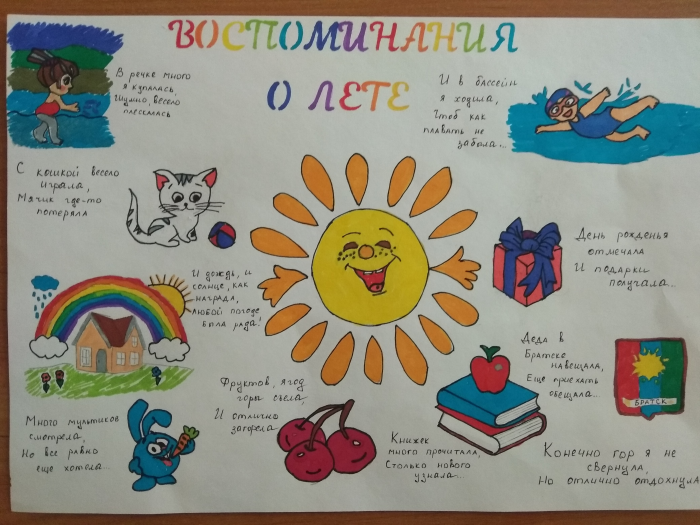 ВОСПОМИНАНИЯ
О ЛЕТЕ
В речке много
я купалась,
Шумно, весело
плескалась
И в бассейн
я ходила,
Чтоб как
плавать не
забыла...
С кошкой весело
играла,
Мячик где-то
потеряла
И дождь, и
солнце, как
награда,
Любой погоде
была рада!
День рожденья
отмечала
И подарки
получала...
Деда в
Братске
навещала,
Еще приехать
обещала...
БРАТСК
Фруктов, ягод
гору съела,
И отлично
загорела
Много мультиков
смотрела,
Но все равно
еще хотела...
Книжек
много прочитала,
Столько нового
узнала...
Конечно гор я не
свернула,
Но отлично отдохнула